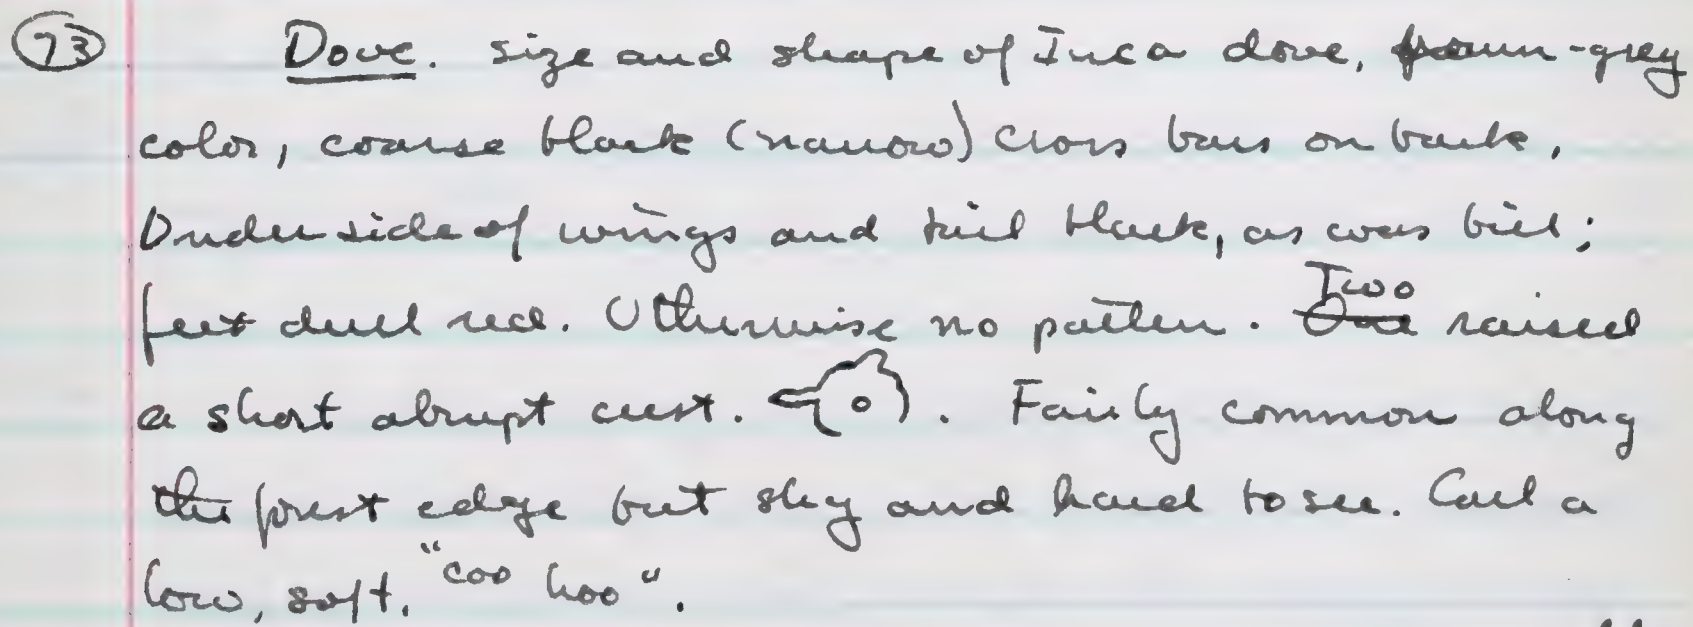 73 Dove. size and shape of Inca dove, fawn-grey
color, coarse black (narrow) cross bars on back,
Underside of wings and tail black, as was bill;
feet dull red. Otherwise no pattern. Two One raised
a short abrupt crest. . Fairly common along
the forest edge but shy and hard to see. Call a
low, soft, "coo hoo".